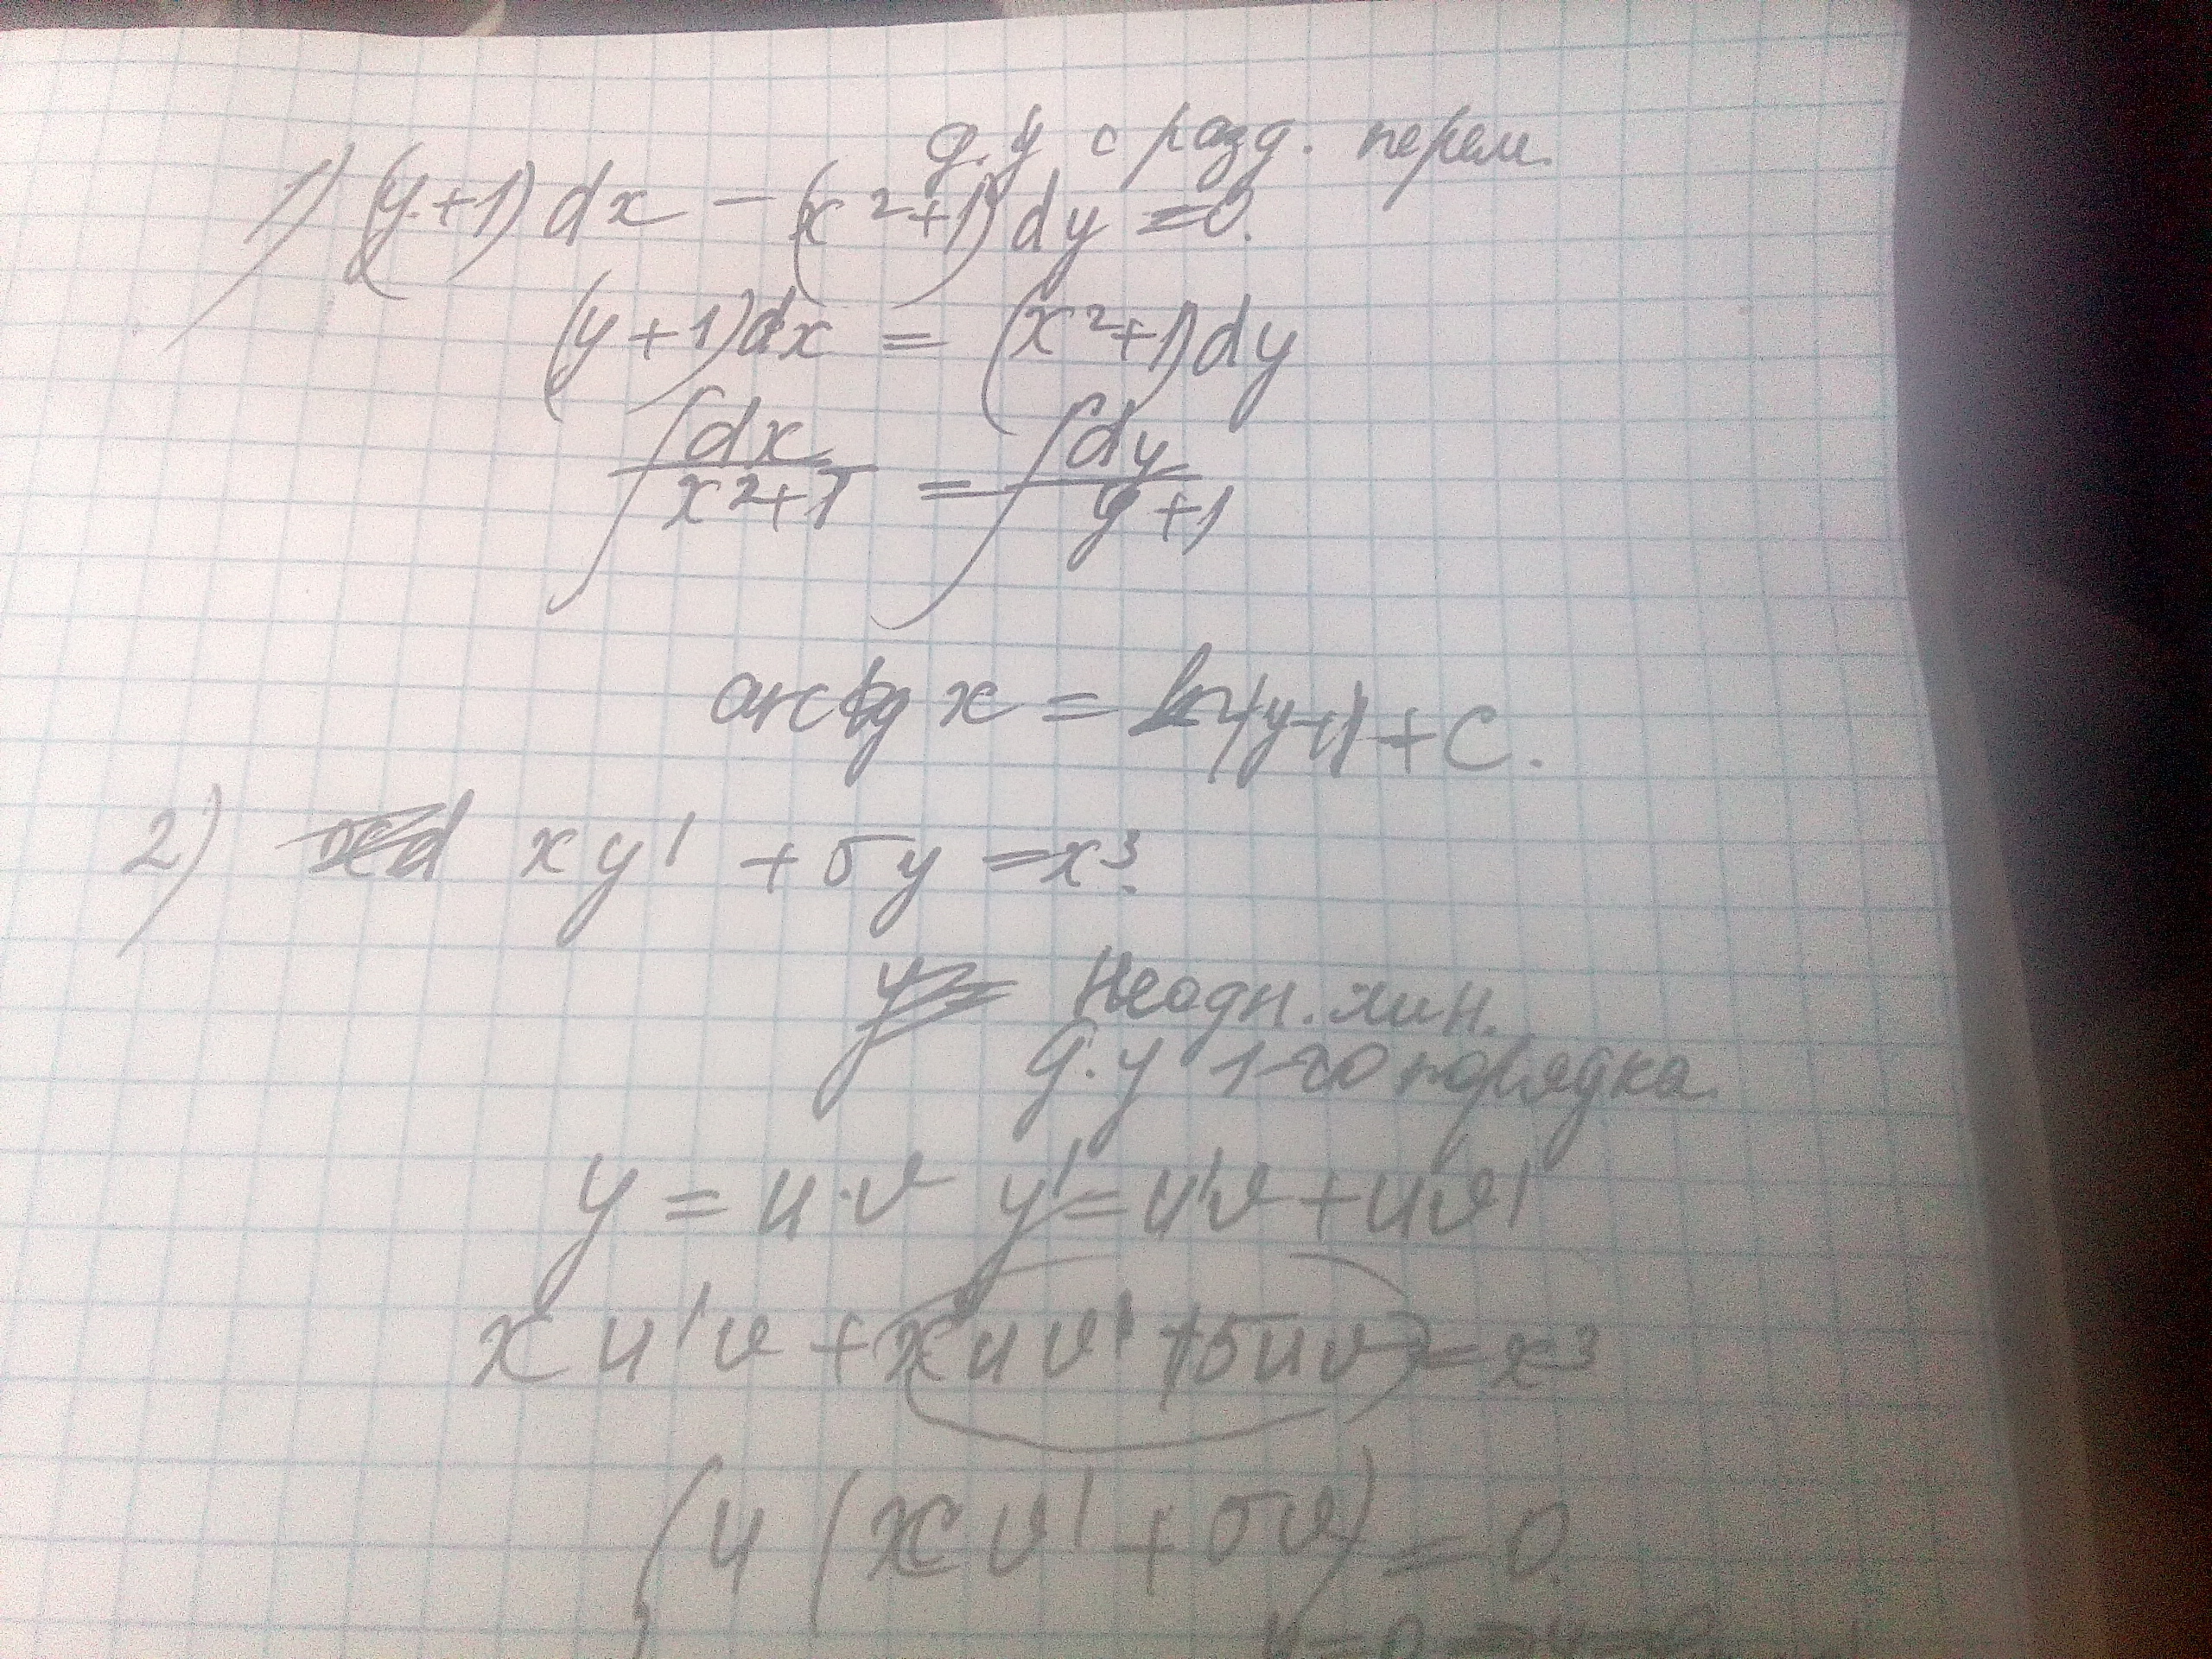 д.у с разд. перем.
1) (y+1)dx - (x²+1)dy = 0.
(y+1)dx = (x²+1)dy
∫dx/x²+1 = ∫dy/y+1
arctg x = ln|y+1| + C.
2) xy' + 5y = x³.
Неодн. лин.
д.у 1-го порядка
y = u·v y' = u'v + uv'
xu'v + xuv' + 5uv = x³
{u(xv' + 5v) = 0